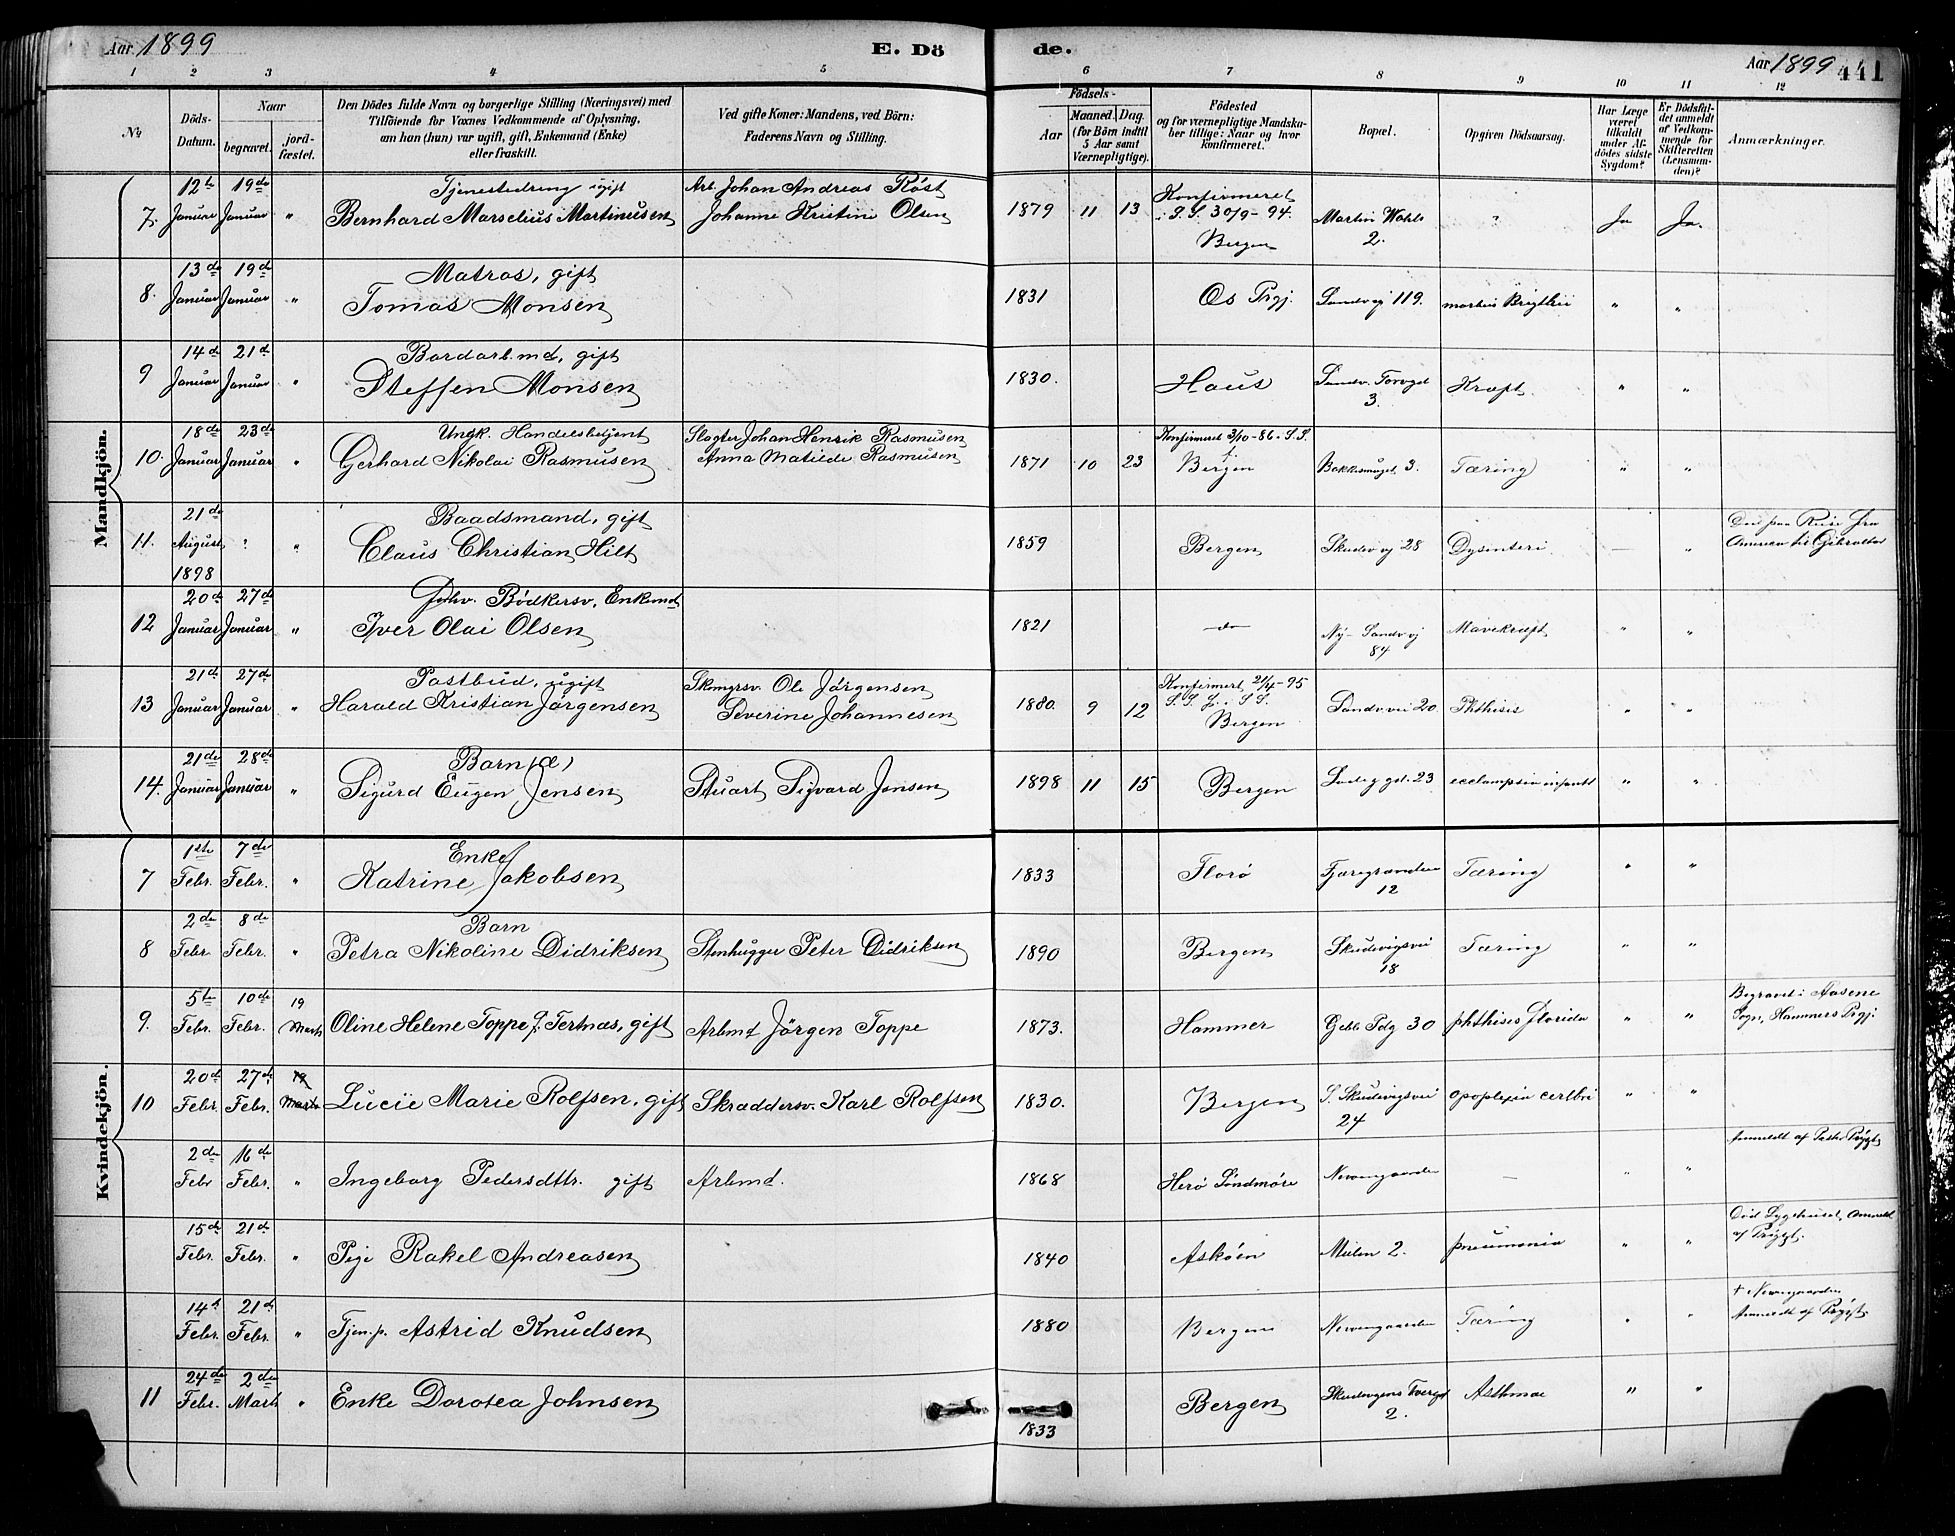 Aar 1899 E. Dö
de. Aar 1899 441
1 2 3 4 5 6 7 8 9 10 11 12
No
Döds-Datum.
Naar
begravet.
jord-fæstet.
Den Dödes fulde Navn og borgerlige Stilling (Næringsvei) med
Tilföiende for Voxnes Vedkommende af Oplysning,
om han (hun) var ugift, gift, Enkemand (Enke)
eller fraskilt.
Ved gifte Koner: Mandens, ved Börn:
Faderens Navn og Stilling.
Födsels-
Aar
Maaned. Dag.
(for Börn indtil
5 Aar samt
Værnepligtige).
Födested
og for værnepligtige Mandskaber tillige: Naar og hvor
Konfirmeret.
Bopæl.
Opgiven Dödsaarsag.
Har Læge
været
tilkaldt
under Afdödes sidste
Sygdom?
Er Dödsfaldet anmeldt
af Vedkommende for
Skifteretten
(Lensmanden)?
Anmærkninger.
Mandkjön.
12te 19de Tjenestedreng ugift Arb. Johan Andreas Röst Konfirmeret
7. Januar Januar " Bernhard Marselius Martinusen Johanne Kristine Olsen 1879 11 13 i S.S. 30/9-94. Martin Wahls " Ja Ja.
Bergen 2.
13de 19de Matros, gift
8. Januar Januar " Tomas Monsen 1831 Os Prgj. Sandvvj 119. morbus Brightii " "
14de 21de Bordarb.md, gift
9 Januar Januar " Steffen Monsen 1830. Haus Sandv. Torvgd Kræft. " "
3.
18de 23de Ungk. Handelsbetjent Slagter Johan Henrik Rasmusen Konfirmeret 3/10-86 i S.S.
10. Januar Januar " Gerhard Nikolai Rasmusen Anna Matilde Rasmusen 1871 10 23 Bergen 3. Tæring " "
21de Baadsmand, gift Död paa Reise fra
11. August " " Claus Christian Hilt 1859 Bergen Skudevvj 28 Dysenteri — " til Gibraltar
1898
20de 27de Bödkersv, Enkemd
12 Januar Januar " Iver Olai Olsen 1821 — do Ny-Sandvvj Mavekræft " "
84
21de 27de Postbud, ugift Skomgrsv. Ole Jörgensen Konfirmert 21/4-95
13 Januar Januar " Harald Kristian Jörgensen Severine Johannesen 1880. 9 12 Bergen Sandv.vei 20 Phthisis " "
21de 28de Barn (Æ)
14. Januar Januar " Sigurd Eugen Jensen Stuart Sigvard Jensen 1898 11 15 Bergen 23 ecclampsia infantil " "
Kvindekjön.
1ste 7de Enke
7 Febr. Febr. " Katrine Jakobsen 1833 Florö Fjæregranden Tæring " "
12
2de 8de Barn
8 Febr. Febr. " Petra Nikoline Didriksen Stenhugger Peter Didriksen 1890 Bergen Skudevigsvei Tæring " "
18
5te 10de 19 Begravet i Aasene
9. Febr. Febr. Marts Oline Helene Toppe f. Tertnæs, gift Arbmd Jörgen Toppe 1873. Hammer 30 phthisis florida " " Sogn, Hammers Prgj.
20de 27de 19
10 Febr. Febr. Marts Lucie Marie Rolfsen, gift Skræddersv. Karl Rolfsen 1830. Bergen S. Skudevigsvei apoplexia cerebri " "
24
2de 16de Anmeldt af
Febr Febr. " Ingeborg Pedersdttr. gift Arbmd. 1868 Herö Söndmöre Nevengaarden — " "
15de 21de Död Sygehuset, Anmeldt
Febr. Febr. " Pige Rakel Andreasen 1840 Asköen Mulen 2. pneumonia " " af
14de 21de + Nevengaarden
Febr. Febr " Tjen.p. Astrid Knudsen 1880 Bergen Nevengaarden Tæring " " Anmeldt af
24de 2de
11 Febr. Marts " Enke Dorotea Johnsen 1833 Bergen Skudevigens Tvergd Asthma " "
2.